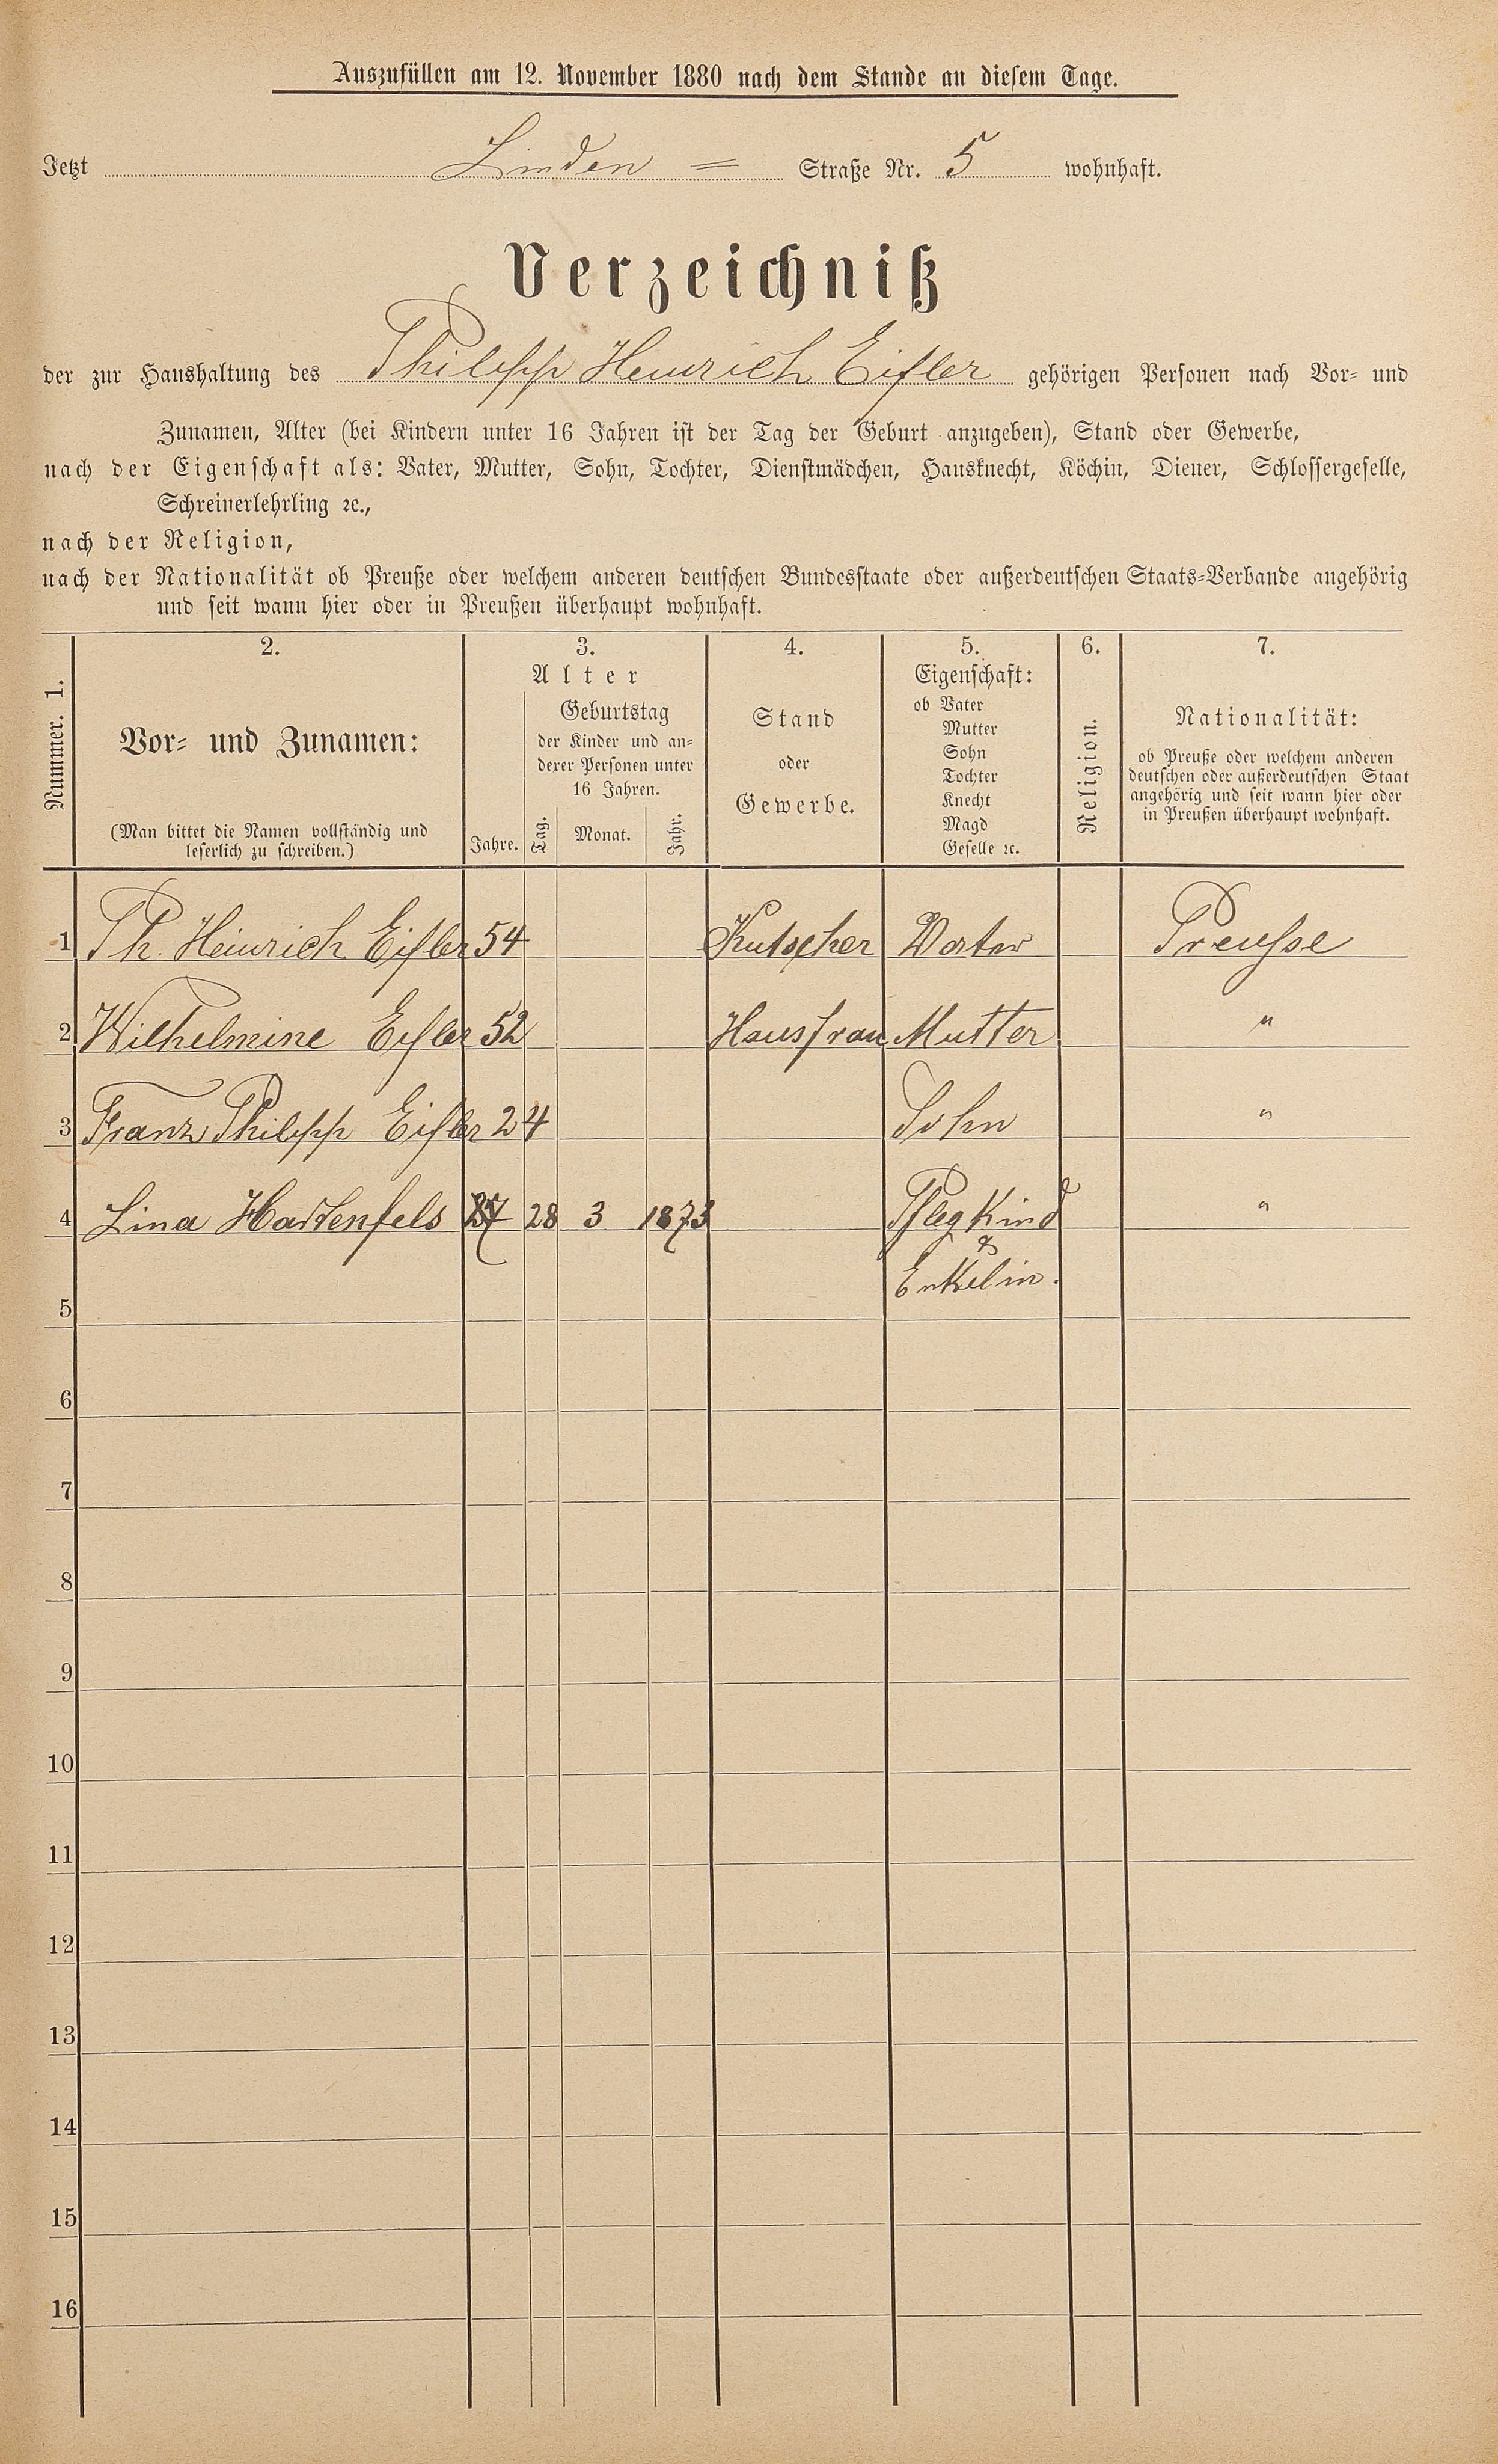 Auszufüllen am 12. November 1880 nach dem Stande an diesem Tage.
Jetzt Linden = Straße Nr. 5 wohnhaft.
Verzeichniß
der zur Haushaltung des Philipp Heinrich Eifler gehörigen Personen nach Vor- und
Zunamen, Alter (bei Kindern unter 16 Jahren ist der Tag der Geburt anzugeben), Stand oder Gewerbe,
nach der Eigenschaft als: Vater, Mutter, Sohn, Tochter, Dienstmädchen, Hausknecht, Köchin, Diener, Schlossergeselle,
Schreinerlehrling ꝛc.,
nach der Religion,
nach der Nationalität ob Preuße oder welchem anderen deutschen Bundesstaate oder außerdeutschen Staats-Verbande angehörig
und seit wann hier oder in Preußen überhaupt wohnhaft.
Nummer. 1.
2.
Vor- und Zunamen:
(Man bittet die Namen vollständig und
leserlich zu schreiben.)
3.
Alter
Geburtstag
der Kinder und an-
derer Personen unter
16 Jahren.
Jahre. Tag. Monat. Jahr.
4.
Stand
oder
Gewerbe.
5.
Eigenschaft:
ob Vater
Mutter
Sohn
Tochter
Knecht
Magd
Geselle ꝛc.
6.
Religion.
7.
Nationalität:
ob Preuße oder welchem anderen
deutschen oder außerdeutschen Staat
angehörig und seit wann hier oder
in Preußen überhaupt wohnhaft.
1 Ph. Heinrich Eifler 54 Kutscher Vater Preuße
2 Wilhelmine Eifler 52 Hausfrau Mutter "
3 Franz Philipp Eifler 24 Sohn "
4 Lina Hartenfels 28 3 1873 Pflegkind "
&
Enkelin.
5
6
7
8
9
10
11
12
13
14
15
16